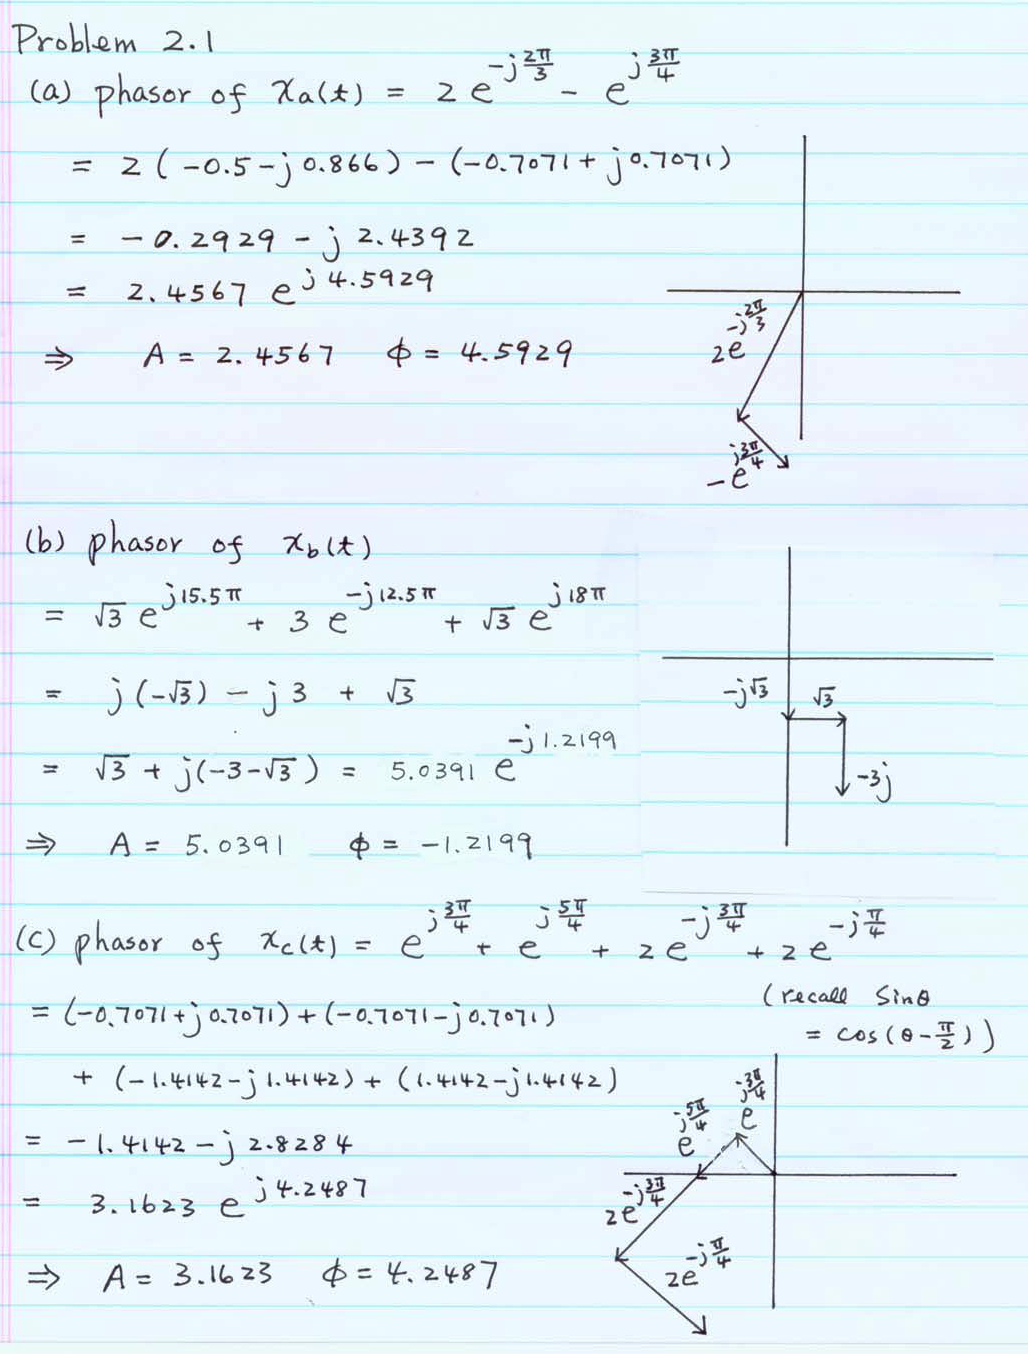 Problem 2.1
(a) phasor of xa(t) = 2e^{-j2π/3} - e^{j3π/4}
= 2(-0.5-j0.866) - (-0.7071+j0.7071)
= -0.2929 - j2.4392
= 2.4567 e^{j4.5929}
⇒ A = 2.4567 ϕ = 4.5929
2e^{-j2π/3}
-e^{j3π/4}
(b) phasor of xb(t)
= √3 e^{j15.5π} + 3e^{-j12.5π} + √3 e^{j18π}
= j(-√3) - j3 + √3
= √3 + j(-3-√3) = 5.0391 e^{-j1.2199}
⇒ A = 5.0391 ϕ = -1.2199
-j√3
√3
-3j
(c) phasor of xc(t) = e^{j3π/4} + e^{j5π/4} + 2e^{-j3π/4} + 2e^{-jπ/4}
(recall sinθ
= cos(θ-π/2))
= (-0.7071+j0.7071) + (-0.7071-j0.7071)
+ (-1.4142-j1.4142) + (1.4142-j1.4142)
= -1.4142 - j2.8284
= 3.1623 e^{j4.2487}
⇒ A = 3.1623 ϕ = 4.2487
e^{j3π/4}
e^{j5π/4}
2e^{-j3π/4}
2e^{-jπ/4}